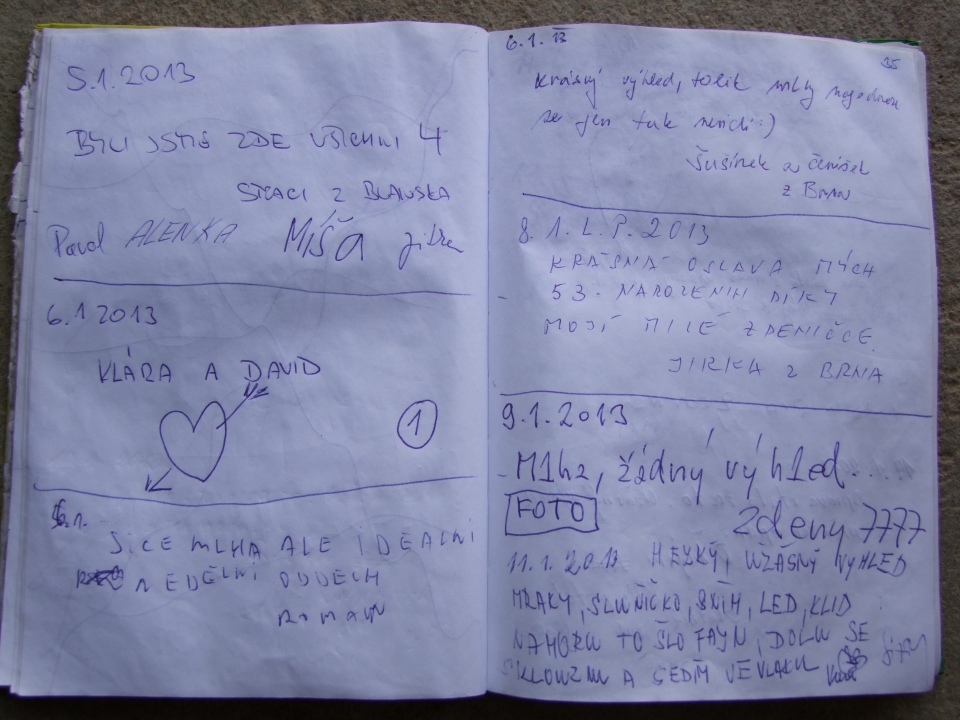 5.1.2013
BYLI JSME ZDE VŠICHNI 4
SRACI Z BLANSKA
Pavel ALENKA MÍŠA Jitka
6.1 2013
KLÁRA A DAVID
1
6.1.
SICE MLHA ALE IDEALNI
NEDĚLNÍ ODDECH
ROMAN
6.1.13
35
Krásný výhled, tolik mlhy najednou
se jen tak nevidí :)
Šušínek a
z Brna
8. 1. L. P. 2013
KRÁSNÁ OSLAVA MÝCH
53. NAROZENIN DÍKY
MOJÍ MILÉ ZDENIČCE.
JIRKA z BRNA
9.1.2013
M1ha, žádný výh1ed...
FOTO
Zdeny 7777
11.1.2013 HEZKÝ, ÚŽASNÝ VÝHLED
MRAKY, SLUNÍČKO, SNÍH, LED, KLID
NAHORU TO ŠLO FAJN, DOLU SE
SKLOUZNU A SEDÍM VE VLAKU